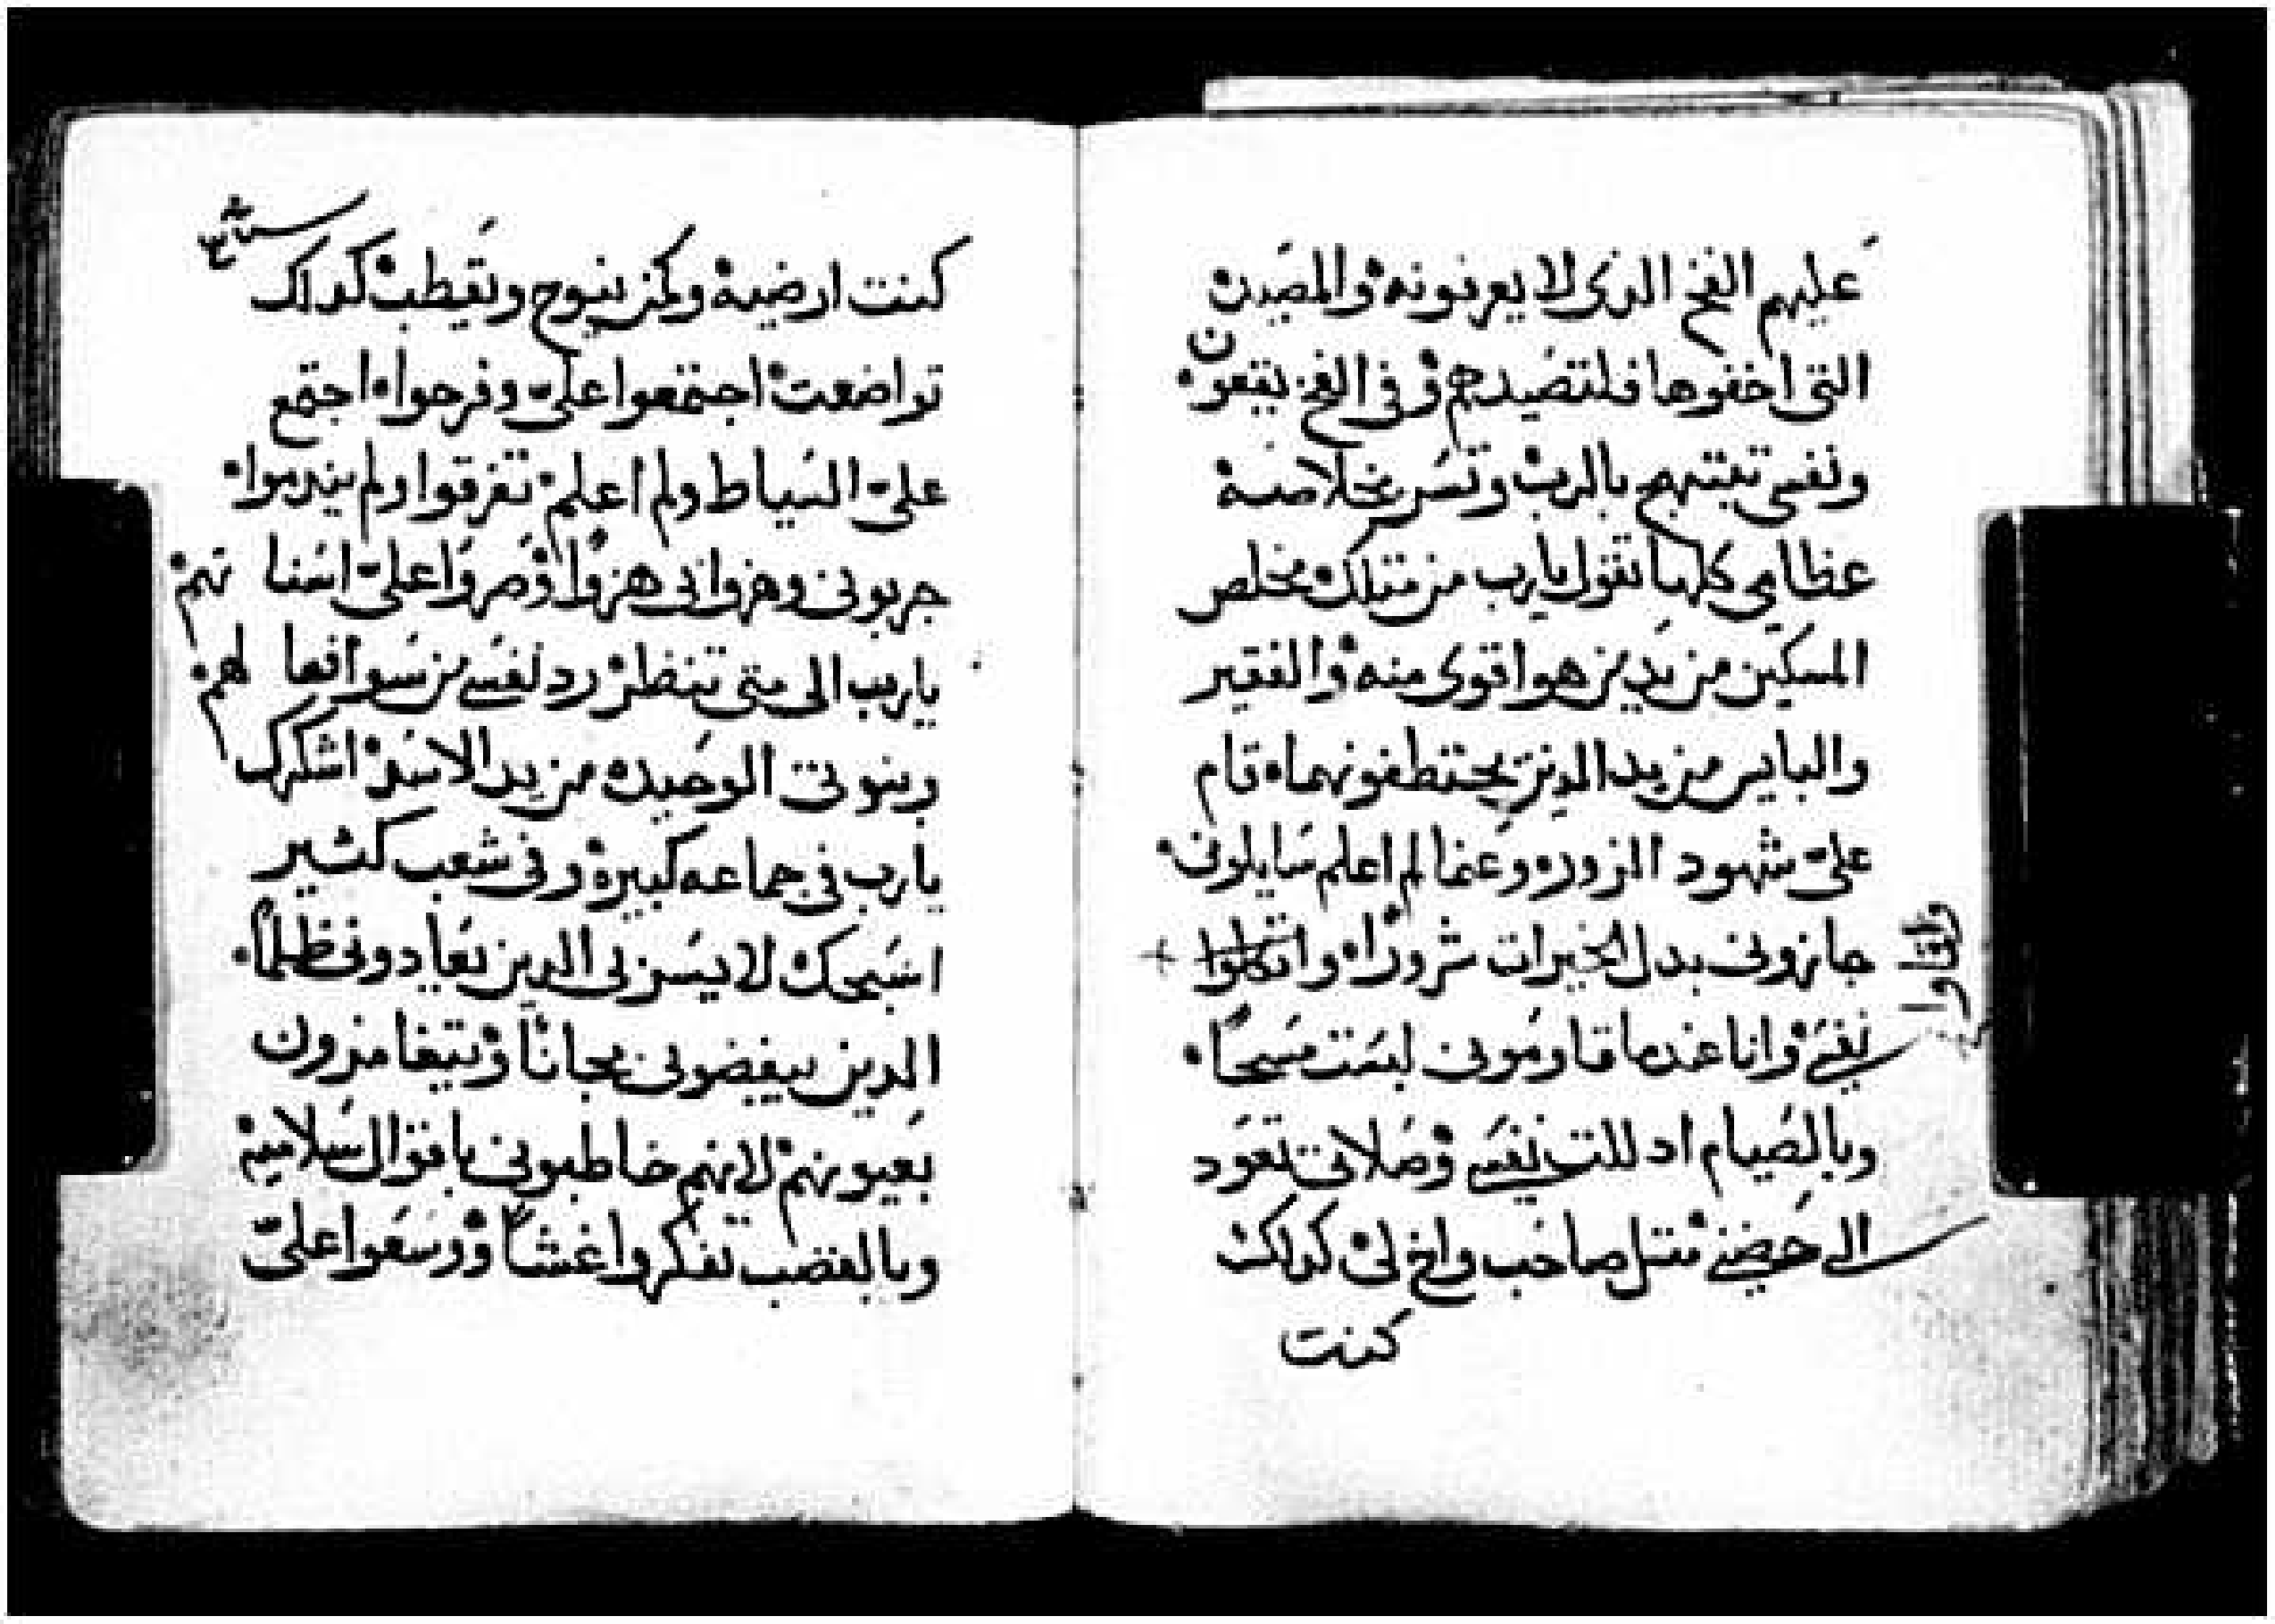 عليهم الفخ الدى لا يعرفونه والمصيدن
التى اخفوها فلتصيدهم وفى الفخ يقعون
ونفسى تبتهج بالرب وتسر بخلاصه
عظامى كلها تقول يارب من مثلك مخلص
المسكين من يد من هو اقوى منه والفقير
والبايس من يد الدين يختطفونهما قام
علىّ شهود الزور وعما لم اعلم سايلونى
جازونى بدل الخيرات شروراً و
نفسى وانا عندما قاومونى لبست مسحاً
وبالصيام ادللت نفسى وصلاتى تعود
الى حضنى مثل صاحب واخ لى كدلك
كنت
كنت ارضيه وكمن ينوح ويقطب كدلك
تواضعت اجتمعوا علىّ وفرحوا اجتمع
علىّ السياط ولم اعلم تفرقوا ولم يندموا
جربونى وهزوا بى هزواً وصروا علىّ اسنانهم
يارب الى متى تنظر رد نفسى من سو افعالهم
وبنوتى الوحيده من يد الاسد اشكرك
يارب فى جماعه كبيره وفى شعب كثير
اسبحك لا يسر بى الدين يعادونى ظلماً
الدين يبغضونى مجاناً ويتغامزون
بعيونهم لانهم خاطبونى باقوال سلاميه
وبالغضب تفكروا غشاً ووسعوا علىّ